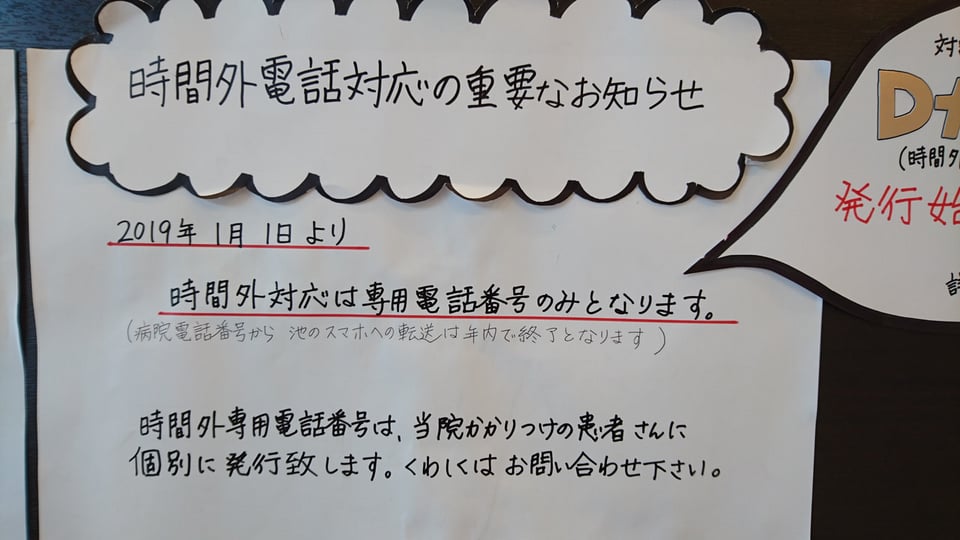 時間外電話対応の重要なお知らせ
2019年 1月 1日より
時間外対応は専用電話番号のみとなります。
(病院電話番号から 池のスマホへの転送は年内で終了となります)
時間外専用電話番号は、当院かかりつけの患者さんに
個別に発行致します。くわしくはお問い合わせ下さい。
対
D
(時間外
発行始